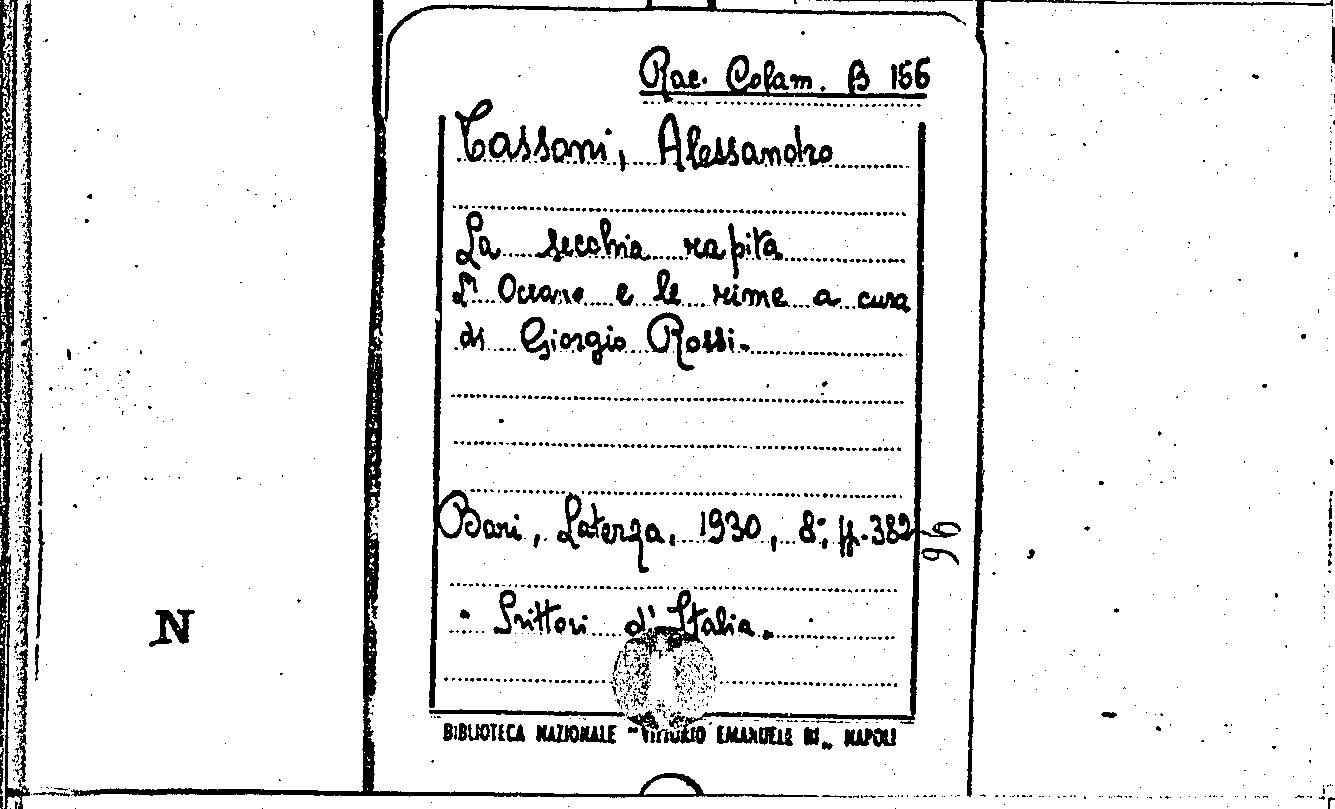 Rac. Colam. B 156
Tassoni, Alessandro
La secchia rapita
L' Oceano e le rime a cura
di Giorgio Rossi.
Bari, Laterza, 1930, 8°, pp. 382
96
Scrittori d'Italia.
N
BIBLIOTECA NAZIONALE "VITTORIO EMANUELE III" NAPOLI